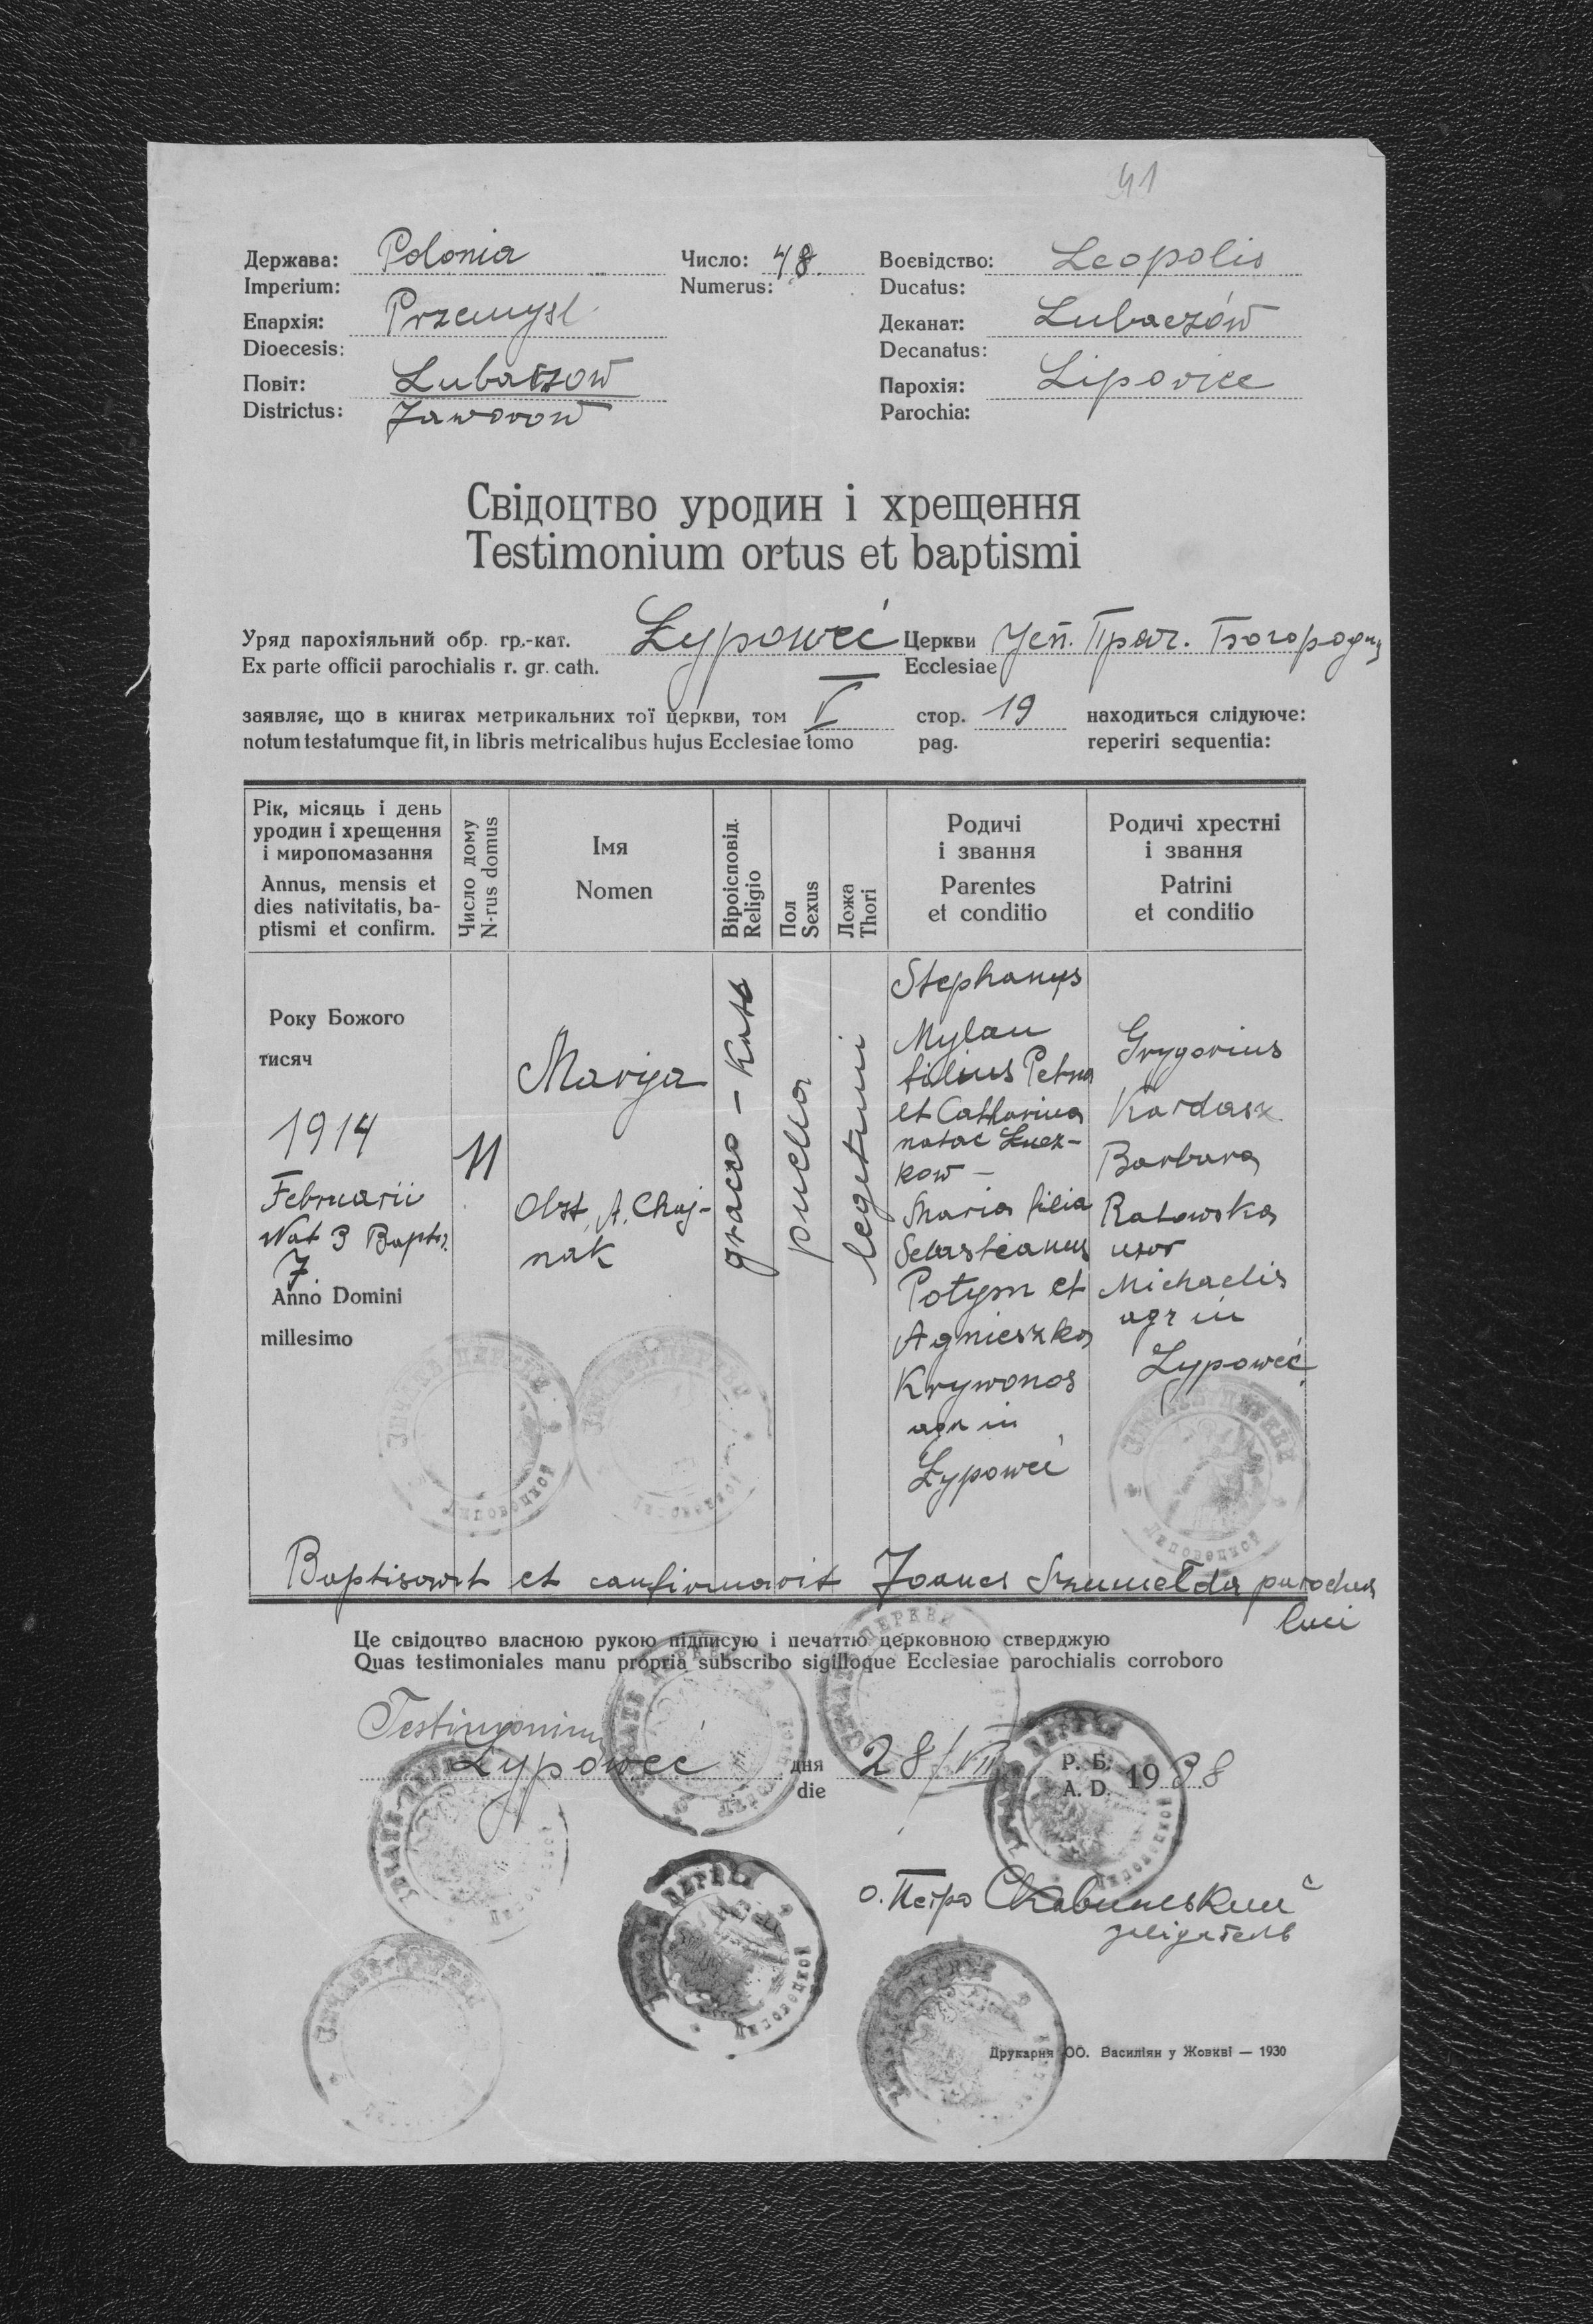 41
Держава: Polonia Число: 48. Воєвідство: Leopolis
Imperium: Numerus: Ducatus:
Епархія: Przemysl Деканат: Lubaczów
Dioecesis: Decanatus:
Повіт: Lubaczow Парохія: Lipoviec
Districtus: Jaworow Parochia:
Свідоцтво уродин і хрещення
Testimonium ortus et baptismi
Уряд парохіяльний обр. гр.-кат. Łypoweć Церкви Усп. Преч. Богородиц
Ex parte officii parochialis r. gr. cath. Ecclesiae
заявляє, що в книгах метрикальних тої церкви, том V стор. 19 находиться слідуюче:
notum testatumque fit, in libris metricalibus hujus Ecclesiae tomo pag. reperiri sequentia:
Рік, місяць і день
уродин і хрещення
і миропомазання
Annus, mensis et
dies nativitatis, ba-
ptismi et confirm.
Число дому
N-rus domus
Імя
Nomen
Віроісповід.
Religio
Пол
Sexus
Ложа
Thori
Родичі
і звання
Parentes
et conditio
Родичі хрестні
і звання
Patrini
et conditio
Року Божого
тисяч
1914
Februarii
Nat 3 Baptis.
7
Anno Domini
millesimo
11
Marija
Obst. A. Chuj-
nak
graeco - Kath
puella
legitimi
Stephanus
Mylan
filius Petra
et Catharina
natae Łucz-
kow -
Maria filia
Sebastianus
Potym et
Agnieszka
Krywonos
agr in
Łypoweć
Grygorius
Kardasz
Barbara
Ratowska
uxor
Michaelis
agr in
Łypoweć
Baptisavit et confirmavit Joanes Szumełda parochus
loci
Це свідоцтво власною рукою підписую і печаттю церковною стверджую
Quas testimoniales manu propria subscribo sigilloque Ecclesiae parochialis corroboro
Testimonium
Łypoweć дня 28/VII Р. Б. 1938
die A. D.
о. Петро
завідатель
Друкарня ОО. Василіян у Жовкві — 1930